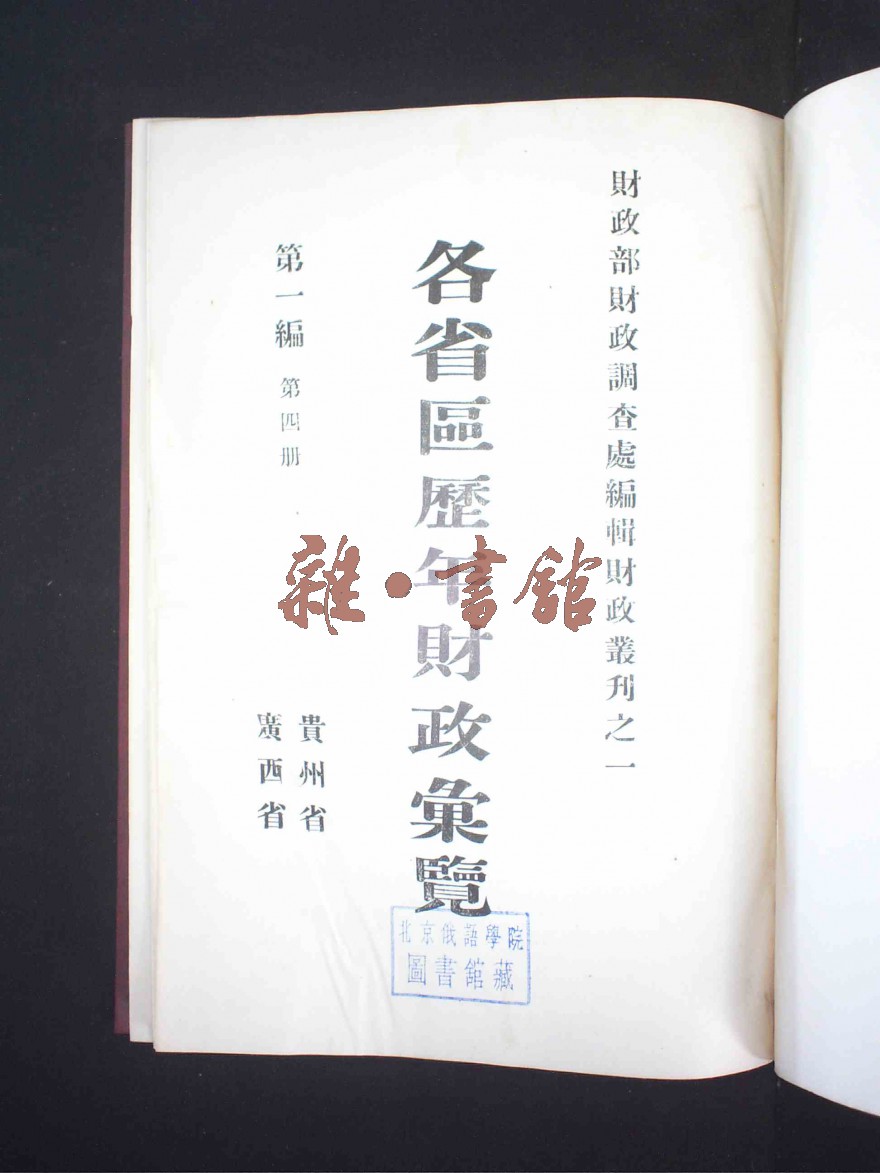 財政部財政調查處編輯財政叢刊之一
各省區歷年財政彙覽
第一編 第四册
貴州省
廣西省
雜·書館
北京俄語學院
圖書館藏